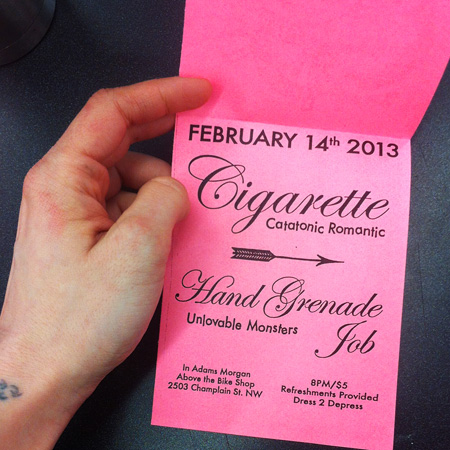 FEBRUARY 14th 2013
Cigarette
Catatonic Romantic
Hand Grenade
Job
Unlovable Monsters
In Adams Morgan
Above the Bike Shop
2503 Champlain St. NW
8PM/$5
Refreshments Provided
Dress 2 Depress